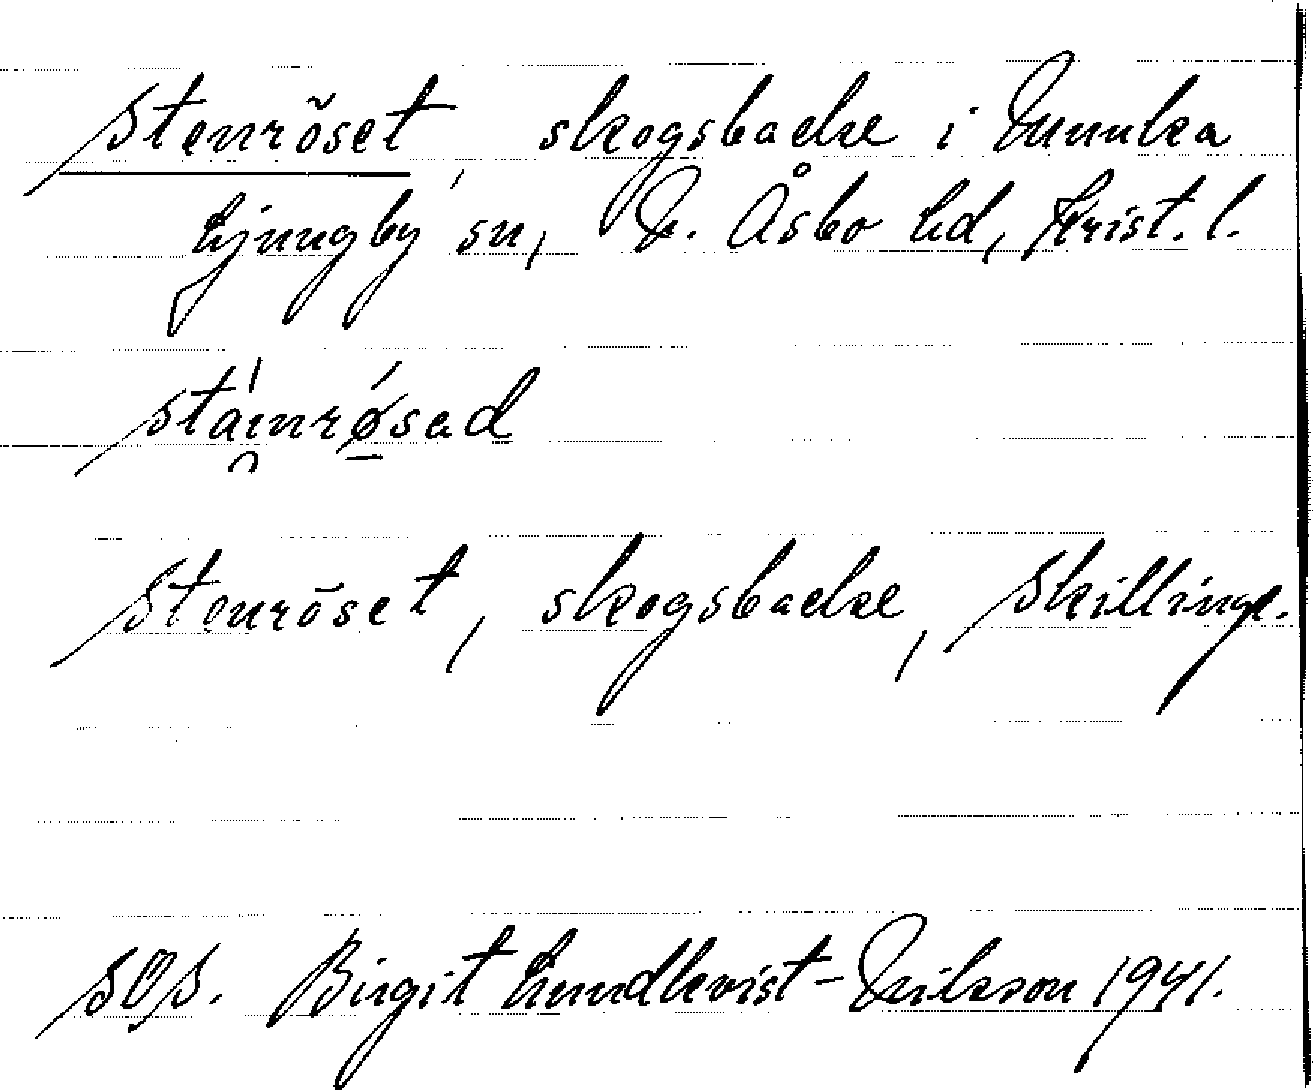 Stenröset, skogsbacke i Munka
Ljungby sn, N. Åsbo hd, Krist. l.
stáinrǿsad
Stenröset, skogsbacke, Skillinge.
SOS. Birgit Lundkvist-Nilsson 1941.